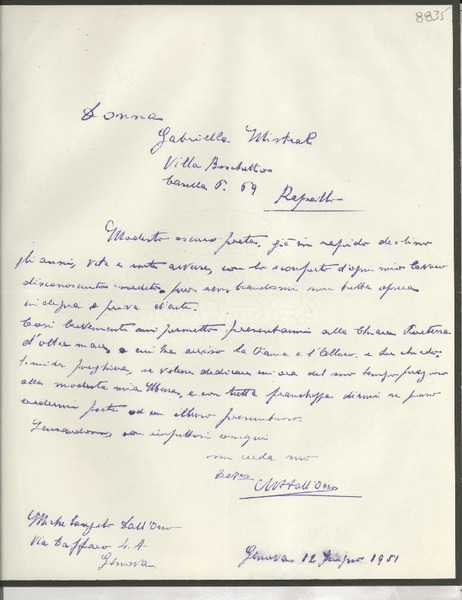 8835
Donna
Gabriella Mistral
Villa Boschetto
Casella P. 69 Rapallo
Modesto oscuro poeta, già in rapido declino
gli anni, vita e
disconosciuto inedito, pur non sembrandomi tutta opera
indegna e priva d'arte.
Così brevemente mi permetto presentarmi alla Chiara Poetessa
d'oltre mare, a cui ha arriso la fama e l'alloro, e Le chiedo
timida preghiera, se volesse dedicare un'ora del suo tempo prezioso
alla modesta mia Musa, e con tutta franchezza dirmi se posso
credermi poeta od un illuso presuntuoso.
con rispettosi ossequi
suo
Dall'Orso
Michelangelo Dall'Orso
Via Caffaro 4. A
Genova
Genova 12 Giugno 1951